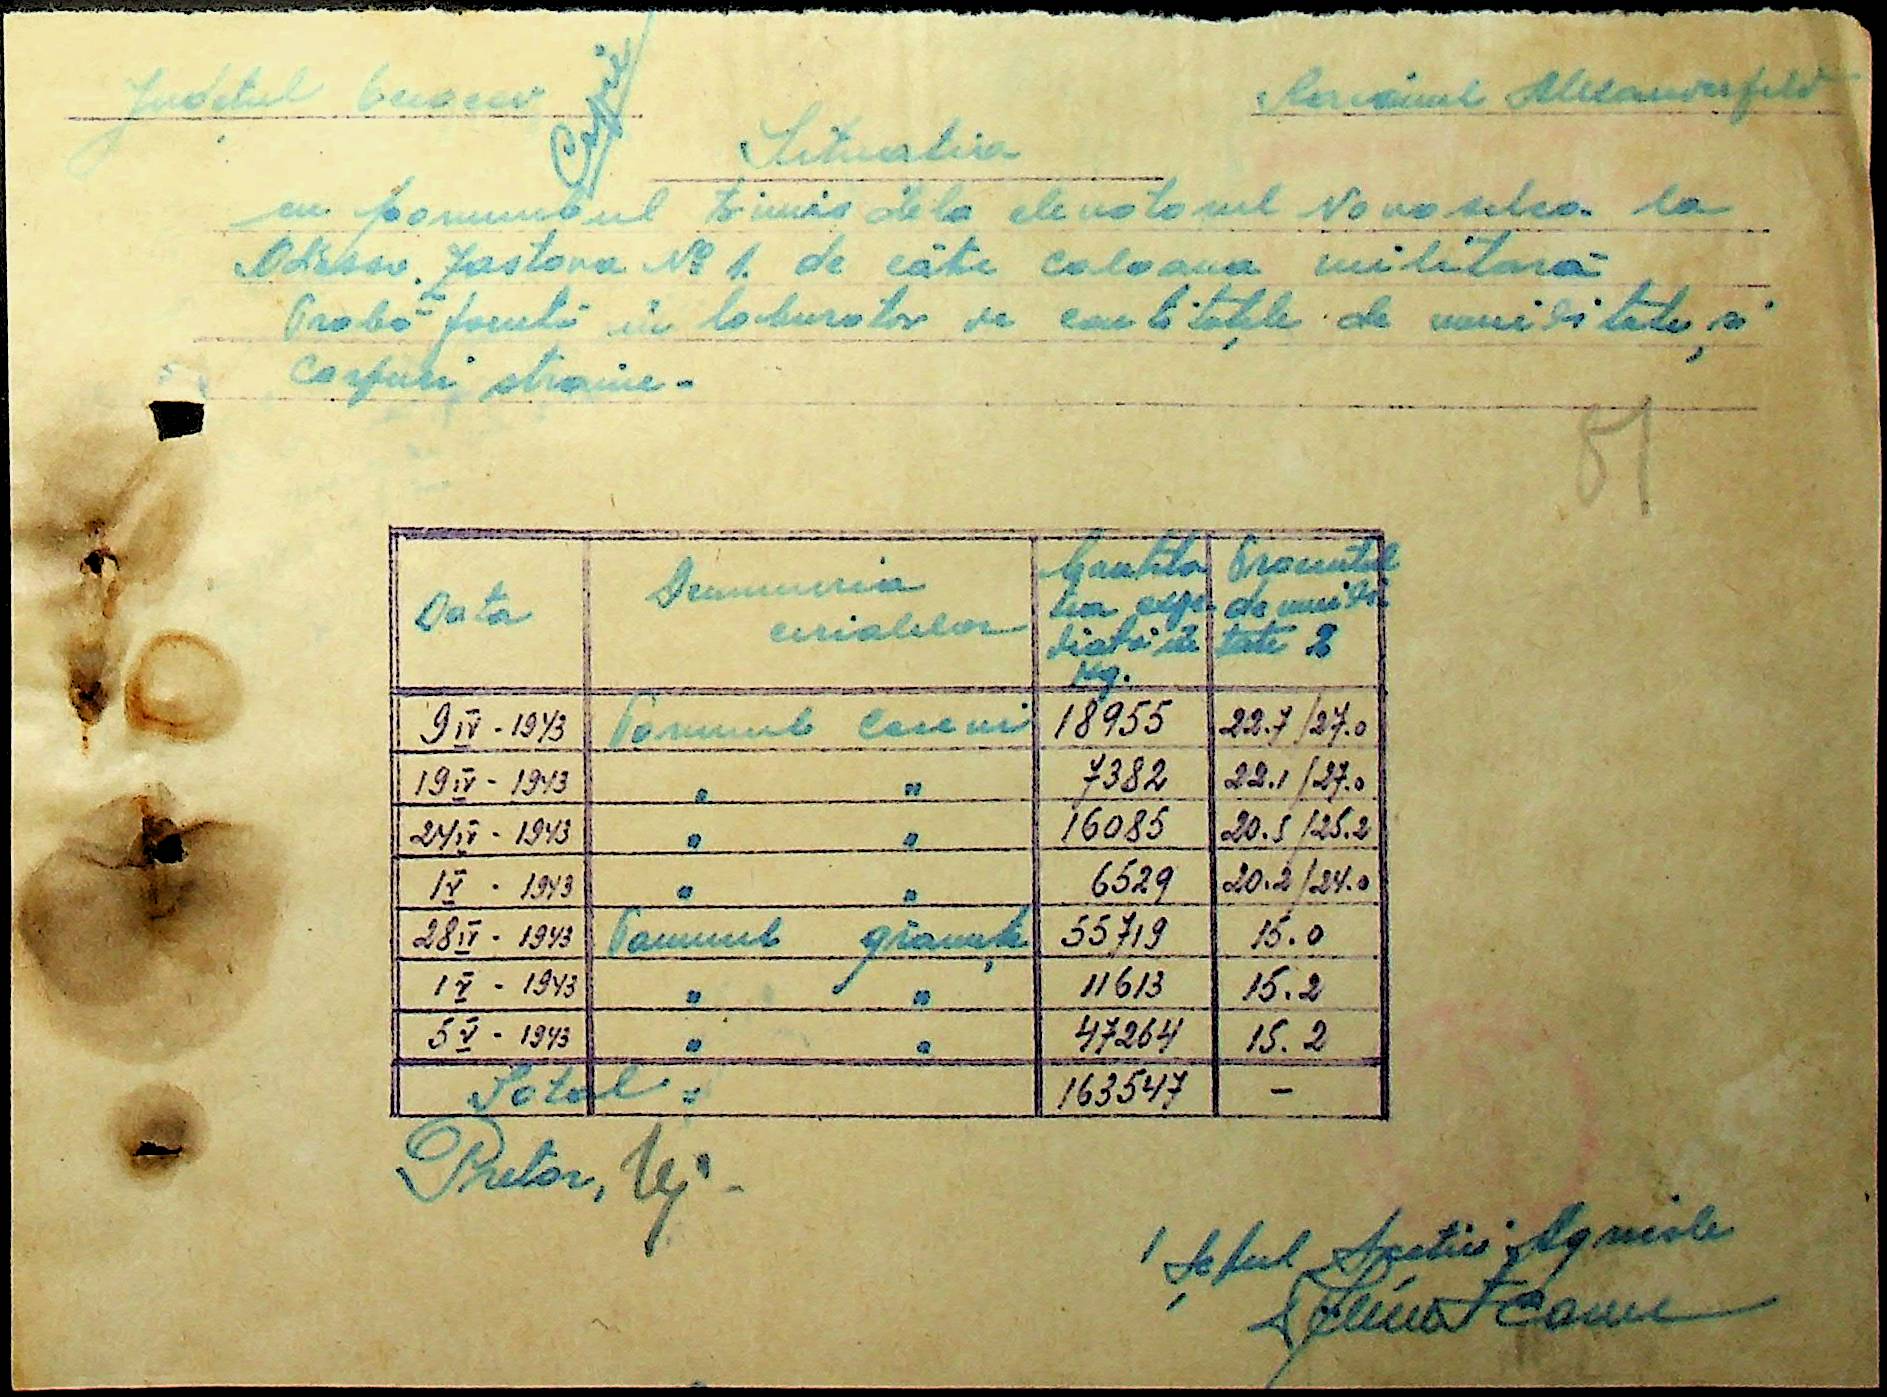 Județul Raionul Alexanderfeld
Situatia
cu porumbul trimis dela elevatorul Novoselca la
Odessa Zastava No 1. de către coloana militară
Probă facută în laborator de cantitățile de umiditate și
corpuri straine -
51
Data Denumeria cerialelor Cantitatea expediată în Kg. Procentul de umiditate %
9 IV - 1943 Porumb coceni 18955 22.7/27.0
19 IV - 1943 " " 7382 22.1/27.0
24 IV - 1943 " " 16085 20.5/25.2
1 V - 1943 " " 6529 20.2/24.0
28 IV - 1943 Porumb grăunțe 55719 15.0
1 V - 1943 " " 11613 15.2
5 V - 1943 " " 47264 15.2
Total: 163547 -
Pretor,
Șeful Secției Agricole